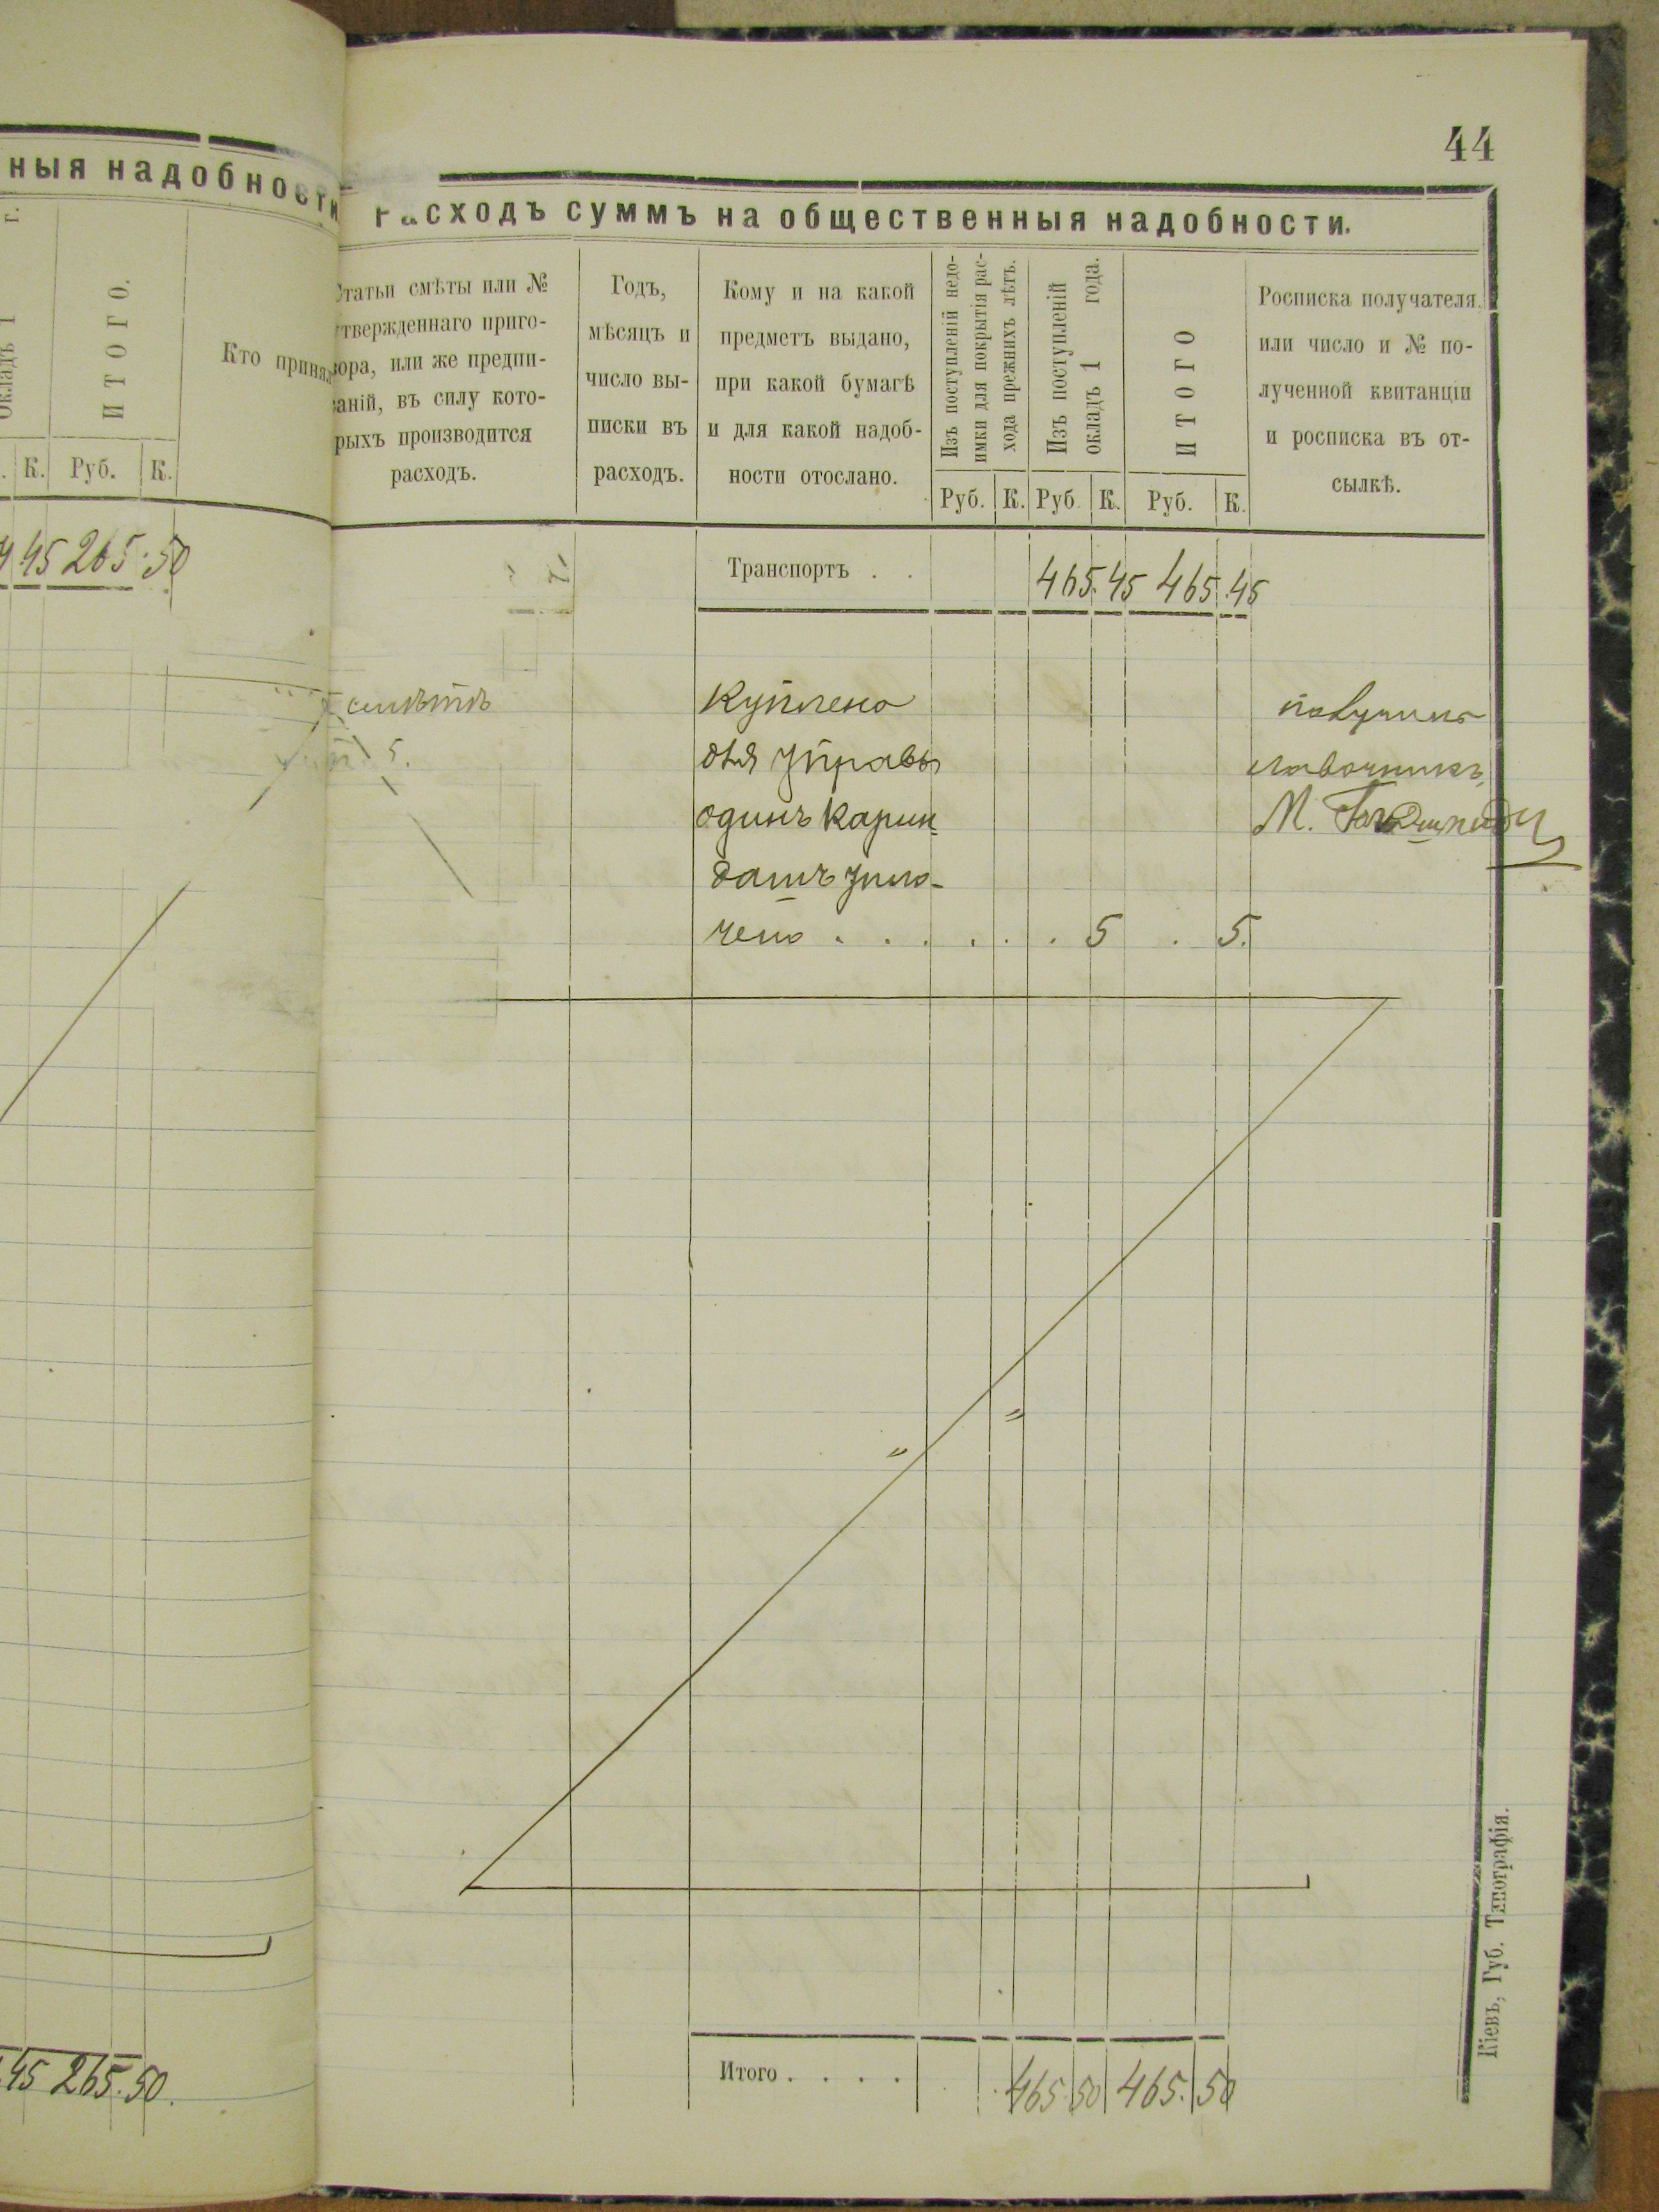 44
ныя надобности
Расходъ суммъ на общественныя надобности.
г.
Окладъ 1
ИТОГО.
Кто принялъ
К. Руб. К.
45 265.50
45 265.50.
Статьи смѣты или №
утвержденнаго приго-
вора, или же предпи-
саній, въ силу кото-
рыхъ производится
расходъ.
Годъ,
мѣсяцъ и
число вы-
писки въ
расходъ.
Кому и на какой
предметъ выдано,
при какой бумагѣ
и для какой надоб-
ности отослано.
Изъ поступленій недо-
имки для покрытія рас-
хода прежнихъ лѣтъ.
Изъ поступленій
окладъ 1 года.
ИТОГО
Росписка получателя
или число и № по-
лученной квитанціи
и росписка въ от-
сылкѣ.
Руб. К. Руб. К. Руб. К.
Транспортъ . . 465.45 465.45
смѣтѣ
5.
Куплено
для Управы
одинъ каран
дашъ упло-
чено . . . . . . 5 . 5.
получилъ
лавочникъ
М.
Итого . . . . 465 50 465. 50
Кіевъ, Губ. Типографія.